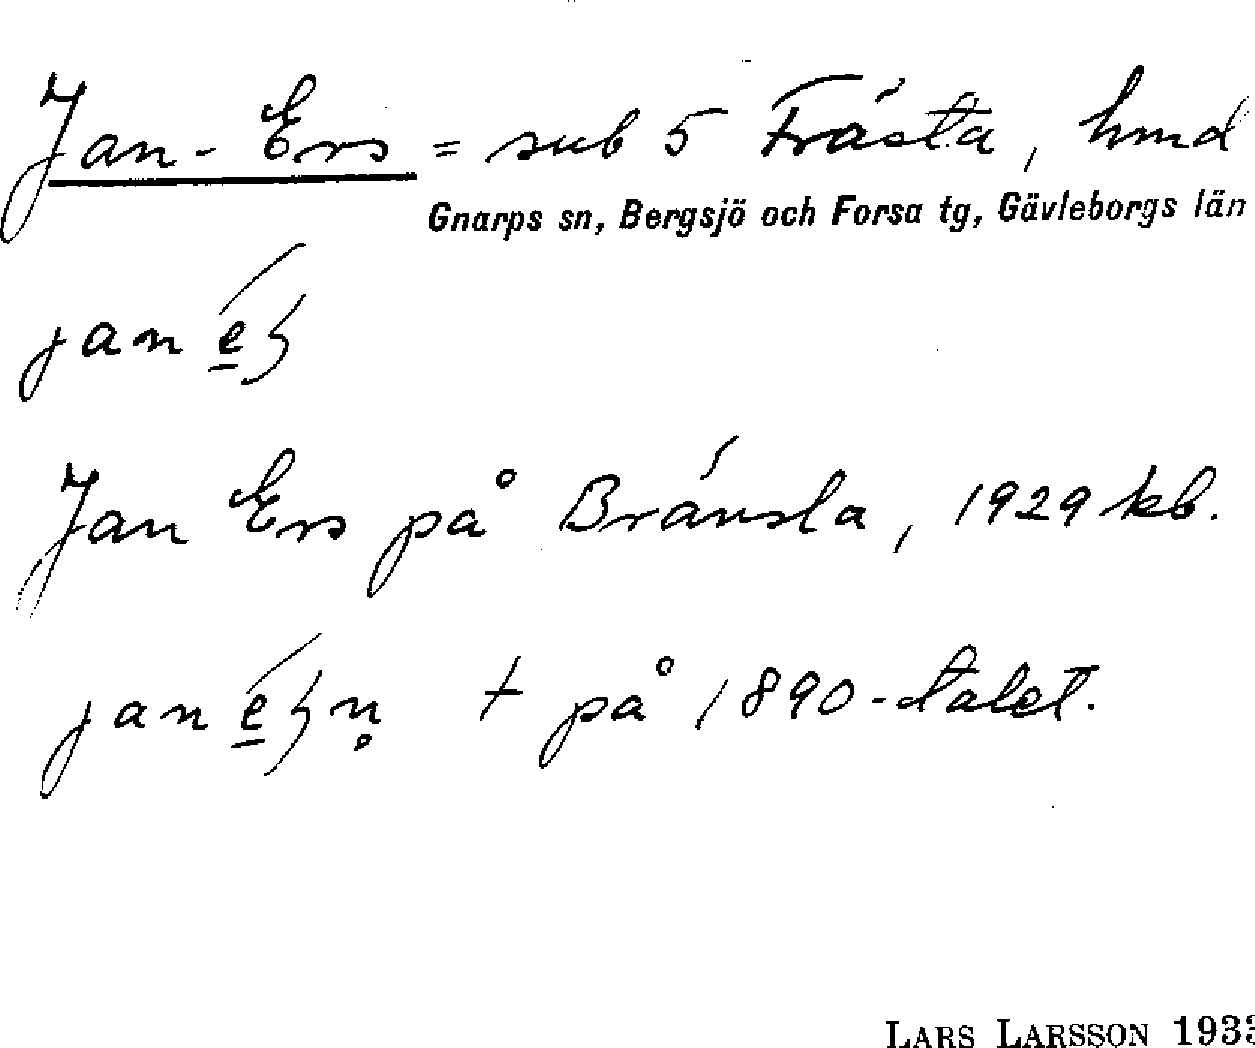 Jan-Ers = sub 5 Frästa, hmd
Gnarps sn, Bergsjö och Forsa tg, Gävleborgs län
jan
Jan Ers på Bränsla, 1929 kb.
jan † på 1890-talet.
LARS LARSSON 1933